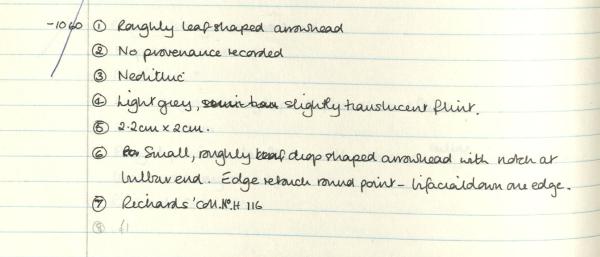 -1060 ① Roughly leaf shaped arrowhead
② No provenance recorded
③ Neolithic
④ Light grey, slightly translucent flint.
⑤ 2.2cm x 2cm.
⑥ Small, roughly leaf drop shaped arrowhead with notch at
bulbar end. Edge retouch round point - bifacial down one edge.
⑦ Richards' Coll. No. H 116
⑧ £1